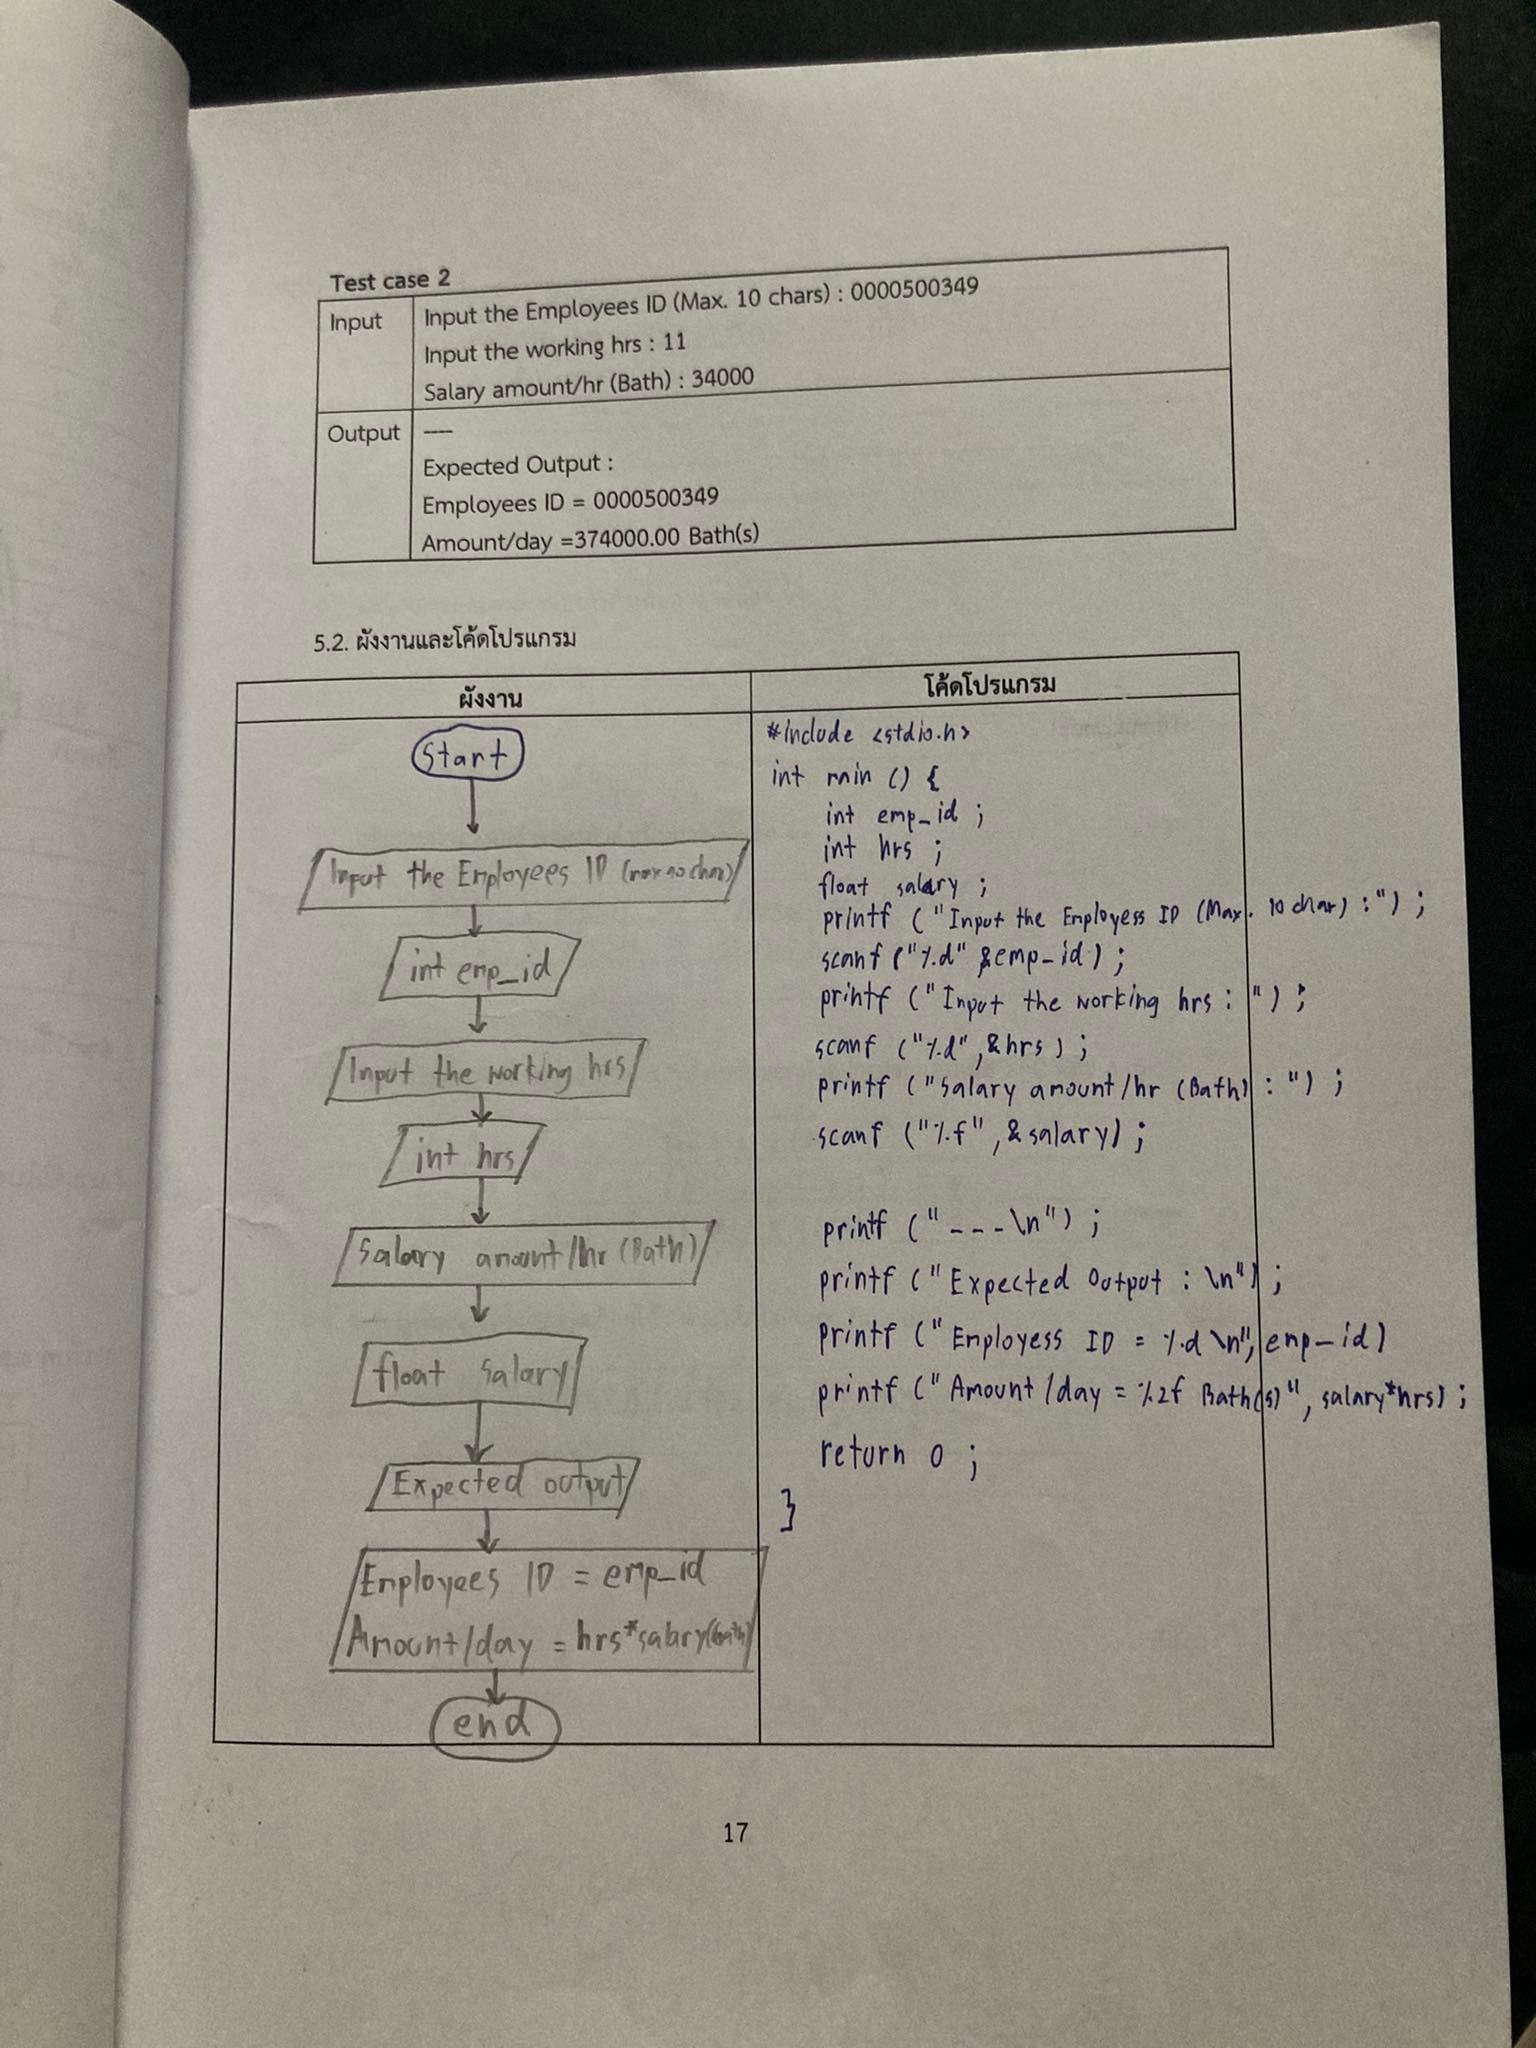 Test case 2
Input
Input the Employees ID (Max. 10 chars) : 0000500349
Input the working hrs : 11
Salary amount/hr (Bath) : 34000
Output
----
Expected Output :
Employees ID = 0000500349
Amount/day =374000.00 Bath(s)
5.2. ผังงานและโค้ดโปรแกรม
ผังงาน
Start
Input the Employees ID (max 10 char)
int emp_id
Input the working hrs
int hrs
Salary amount/hr (Bath)
float salary
Expected output
Employees ID = emp_id
Amount/day = hrs*salary(Bath)
end
โค้ดโปรแกรม
#include <stdio.h>
int min () {
int emp_id ;
int hrs ;
float salary ;
printf ("Input the Employess ID (Max. 10 char) :") ;
scanf ("%d" &emp_id) ;
printf ("Input the working hrs : ") ;
scanf ("%d", &hrs) ;
printf ("Salary amount/hr (Bath) : ") ;
scanf ("%f", &salary) ;
printf ("---\n") ;
printf ("Expected Output : \n") ;
printf ("Employess ID = %d \n", emp_id)
printf ("Amount/day = %2f Bath(s)", salary*hrs) ;
return 0 ;
}
17